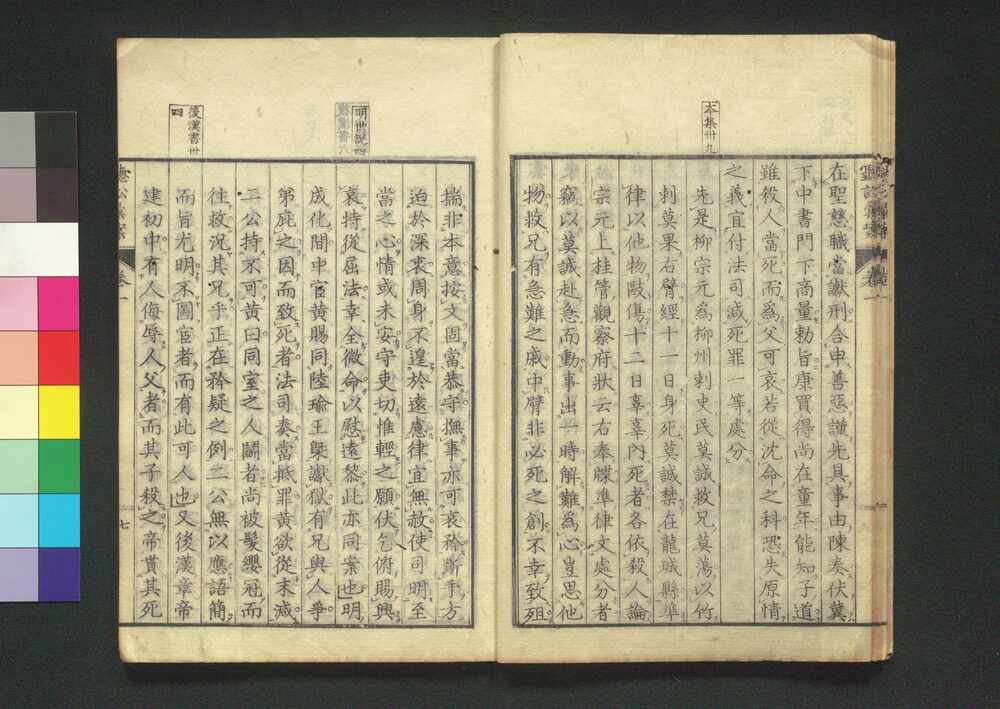 本集卅九
在聖慈職當讞刑合申善惡謹先具事由陳奏伏冀
下中書門下商量勅旨康買得尚在童年能知子道
雖殺人當死而爲父可哀若從沈命之科恐失原情
之義宜付法司減死罪一等處分
先是柳宗元爲柳州刺史民莫誠救兄莫蕩以竹
刺莫果右臂經十一日身死莫誠禁在龍城縣準
律以他物毆傷十二日辜辜內死者各依殺人論
宗元上桂管觀察府狀云右奉牒準律文處分者
竊以莫誠赴急而動事出一時解難爲心豈思他
物救兄有急難之戚中臂非必死之創不幸致殂
揣非本意按文固當恭守撫事亦可哀矜斷手方
迫於深衷周身不遑於遠慮律宜無赦使司明至
當之心情或未安守吏切惟輕之願伏乞俯賜興
哀特從屈法幸全微命以慰遠黎此亦同案也明
成化間中官黃賜同陸瑜王槩讞獄有兄與人爭
弟庇之因而致死者法司奏當抵罪黃欲從末減
三公持不可黃曰同室之人鬪者尚被髮纓冠而
往救況其兄乎正在矜疑之例二公無以應語簡
而旨尤明不圖宦者而有此可人也又後漢章帝
建初中有人侮辱人父者而其子殺之帝貰其死
明世說四
後漢書卅
四
卷一
七